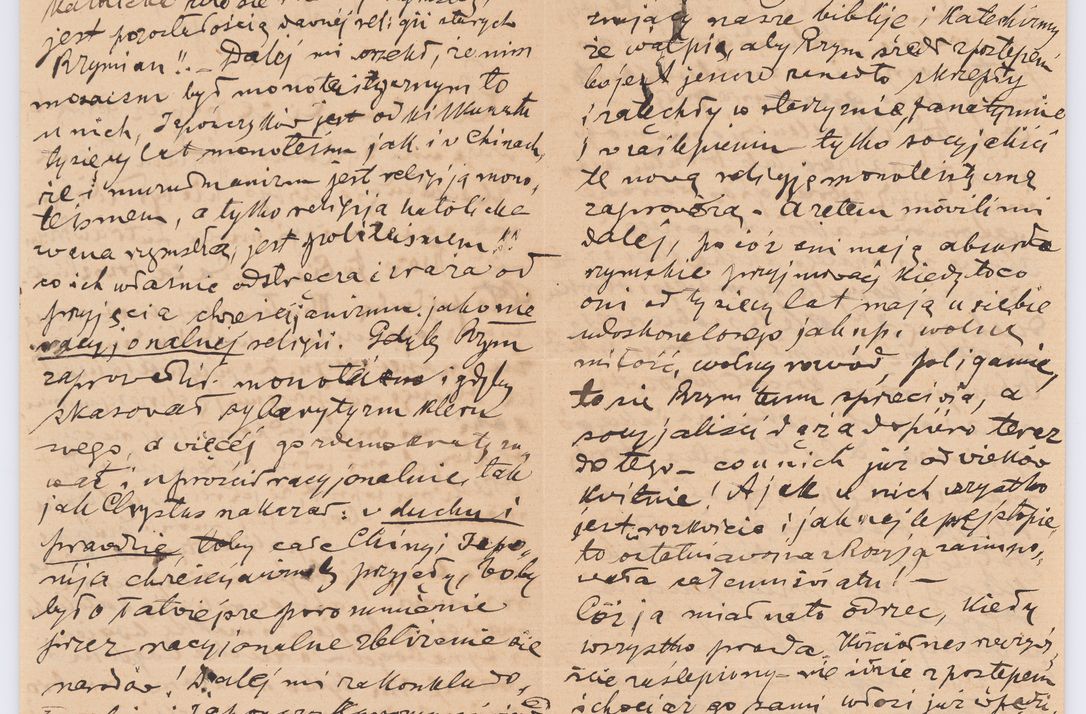 jest pozostałością dawnej religii starych
Rzymian!! – Dalej mi orzekł, że nim
mozaizm był monoteistycznym to
u nich, Japończyków jest od kilkunastu
tysięcy lat monoteizm jak i w Chinach,
że i muzułmanizm jest religiją mono-
teismem, a tylko religija katolicka
zwana rzymską, jest politeismem!!
co ich właśnie odstręcza i zraża od
przyjęcia chrześcijanizmu jako nie
racyjonalnej religii. Gdyby Rzym
zaprowadził monoteizm i gdyby
skasował sybarytyzm kleru
swego, a więcej go zdemokratyzo
wał i uprościł racyjonalnie, tak
jak Chrystus nakazał: w duchu i
prawdzie toby całe Chiny i Japo-
nija chrześcijanizm by przyjęły, boby
było łatwiejsze porozumienie
przez racyjonalne zbliżenie się
narodów! Dalej mi zakonkludo-
znający nasze biblije i Katechizmy
że wątpią, aby Rzym szedł z postępem
bo jest jeszcze zanadto skrzepły
i zatechły w starzyznie, fanatyzmie
i zaślepieniu tylko socyjaliści
tę nową religiję monoteistyczną
zaprowadzą – a zatem mówili mi
dalej, po cóż oni mają absurda
rzymskie przyjmować kiedy to co
oni od tysięcy lat mają u siebie
udoskonalonego jak np. wolną
miłość, wolny rozwód, poligamię,
to się Rzym temu sprzeciwia, a
socyjaliści dążą dopiero teraz
do tego – co u nich już od wieków
kwitnie! A jak u nich wszystko
jest w rozkwicie i jak najlepszej stopie
to ostatnia wojna z Rosyją zaimpo-
wała całemu światu! –
Cóż ja miał na to odrzec, kiedy
wszystko prawda. Kościół nasz
zaślepiony – nie idzie z postępem
i chociaż go sami włosi już